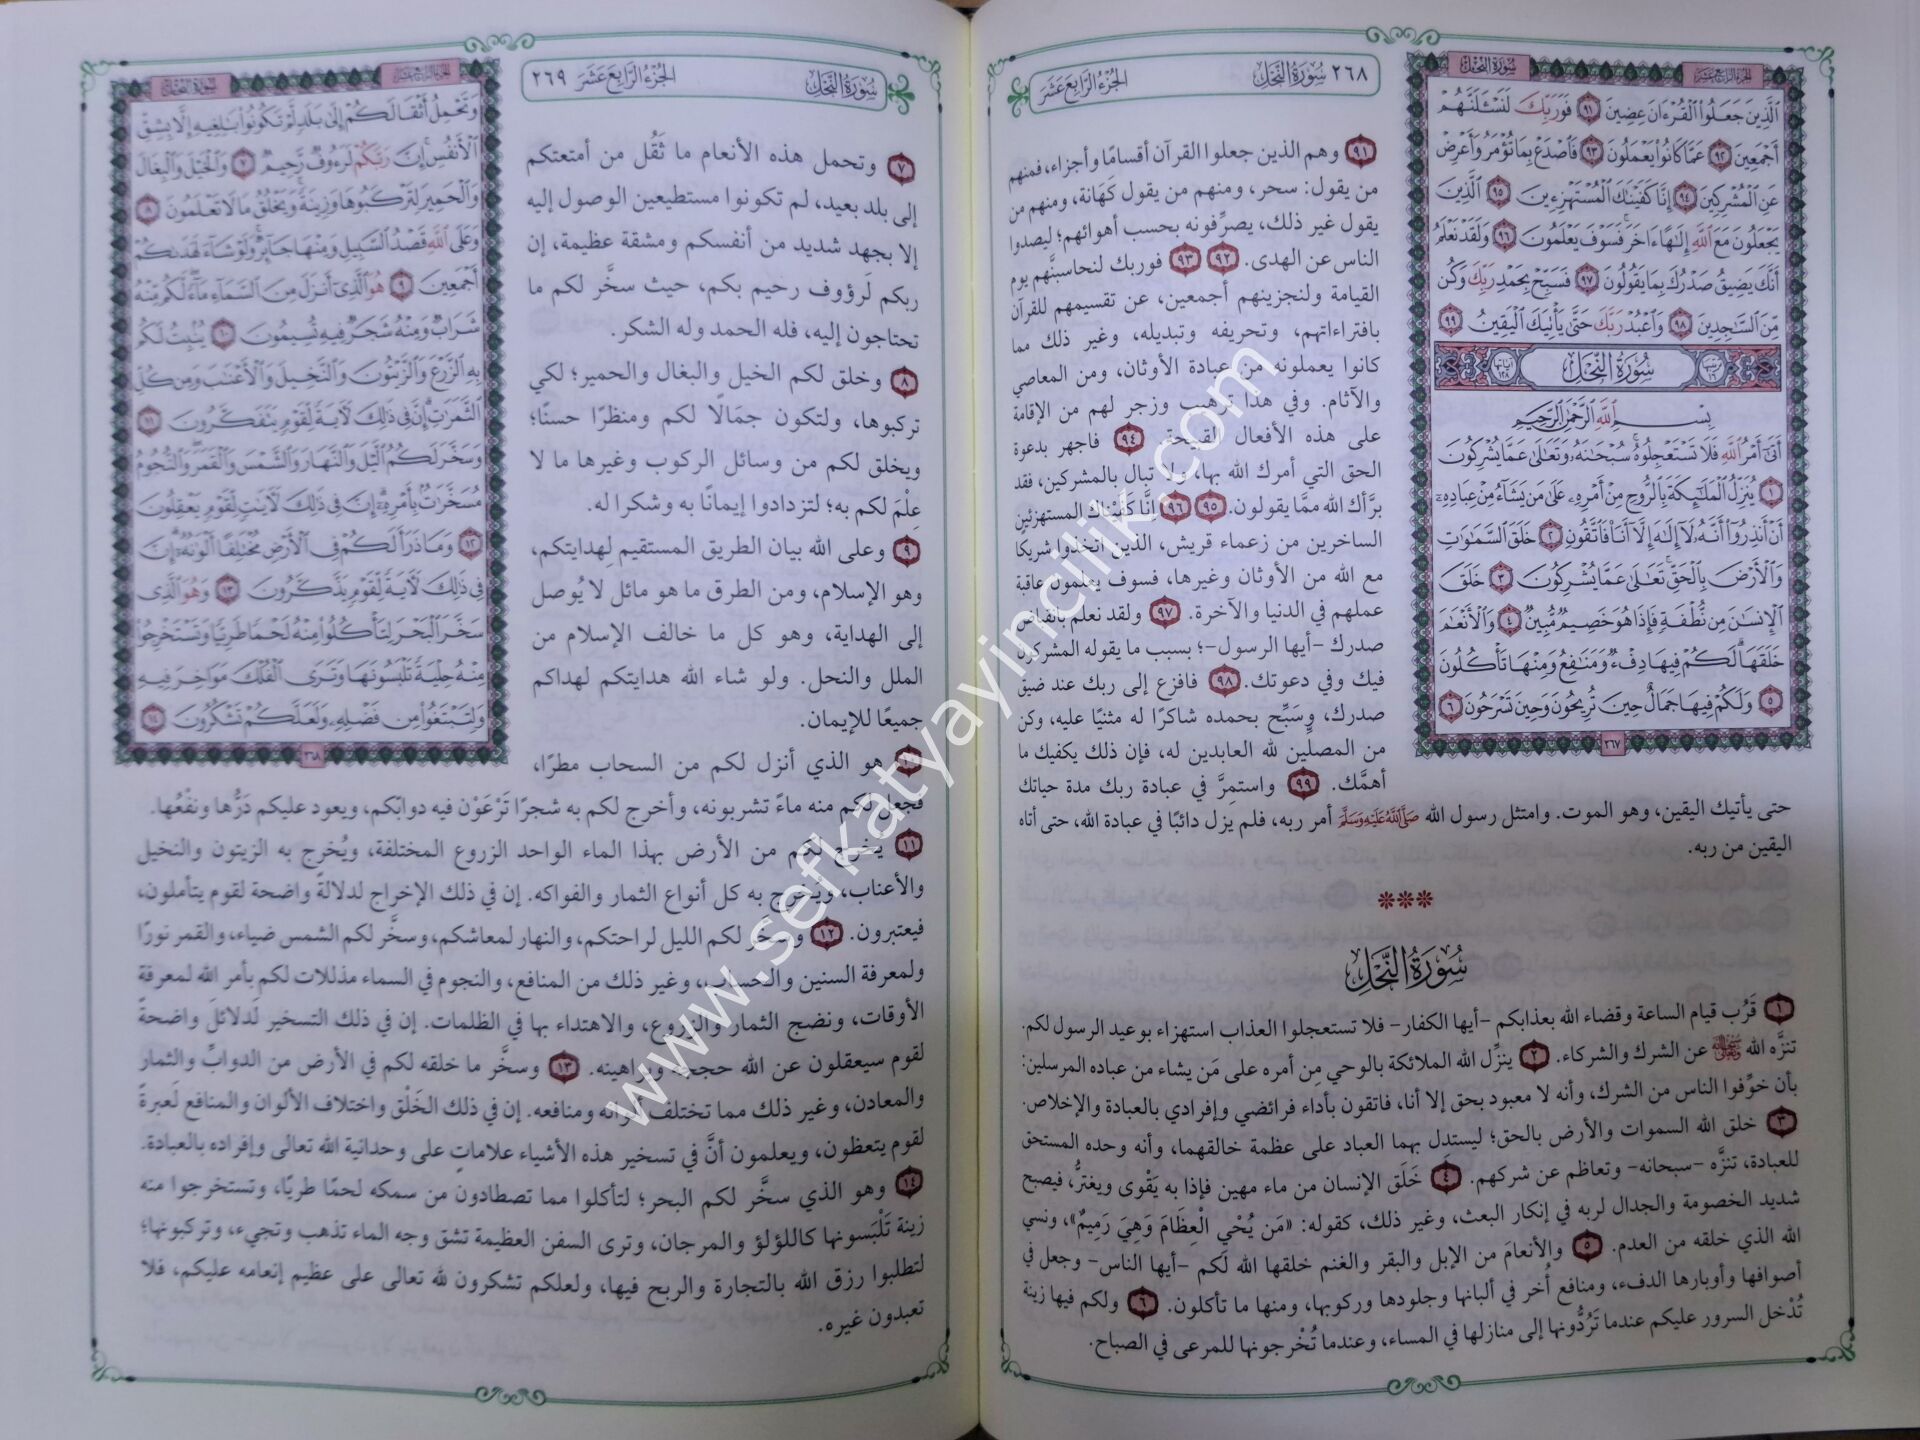 ٢٦٨ سُورَةُ النَّحْلِ الجُزْءُ الرَّابِعَ عَشَرَ
سُورَةُ النَّحْلِ الجُزْءُ الرَّابِعَ عَشَرَ
الَّذِينَ جَعَلُوا الْقُرْءَانَ عِضِينَ ٩١ فَوَرَبِّكَ لَنَسْـَٔلَنَّهُمْ
أَجْمَعِينَ ٩٢ عَمَّا كَانُوا يَعْمَلُونَ ٩٣ فَاصْدَعْ بِمَا تُؤْمَرُ وَأَعْرِضْ
عَنِ الْمُشْرِكِينَ ٩٤ إِنَّا كَفَيْنَاكَ الْمُسْتَهْزِءِينَ ٩٥ الَّذِينَ
يَجْعَلُونَ مَعَ اللَّهِ إِلَٰهًا ءَاخَرَ فَسَوْفَ يَعْلَمُونَ ٩٦ وَلَقَدْ نَعْلَمُ
أَنَّكَ يَضِيقُ صَدْرُكَ بِمَا يَقُولُونَ ٩٧ فَسَبِّحْ بِحَمْدِ رَبِّكَ وَكُن
مِّنَ السَّاجِدِينَ ٩٨ وَاعْبُدْ رَبَّكَ حَتَّىٰ يَأْتِيَكَ الْيَقِينُ ٩٩
سُورَةُ النَّحْلِ
بِسْمِ اللَّهِ الرَّحْمَٰنِ الرَّحِيمِ
أَتَىٰ أَمْرُ اللَّهِ فَلَا تَسْتَعْجِلُوهُ سُبْحَانَهُ وَتَعَالَىٰ عَمَّا يُشْرِكُونَ
١ يُنَزِّلُ الْمَلَائِكَةَ بِالرُّوحِ مِنْ أَمْرِهِ عَلَىٰ مَن يَشَاءُ مِنْ عِبَادِهِ
أَنْ أَنذِرُوا أَنَّهُ لَا إِلَٰهَ إِلَّا أَنَا فَاتَّقُونِ ٢ خَلَقَ السَّمَاوَاتِ
وَالْأَرْضَ بِالْحَقِّ تَعَالَىٰ عَمَّا يُشْرِكُونَ ٣ خَلَقَ
الْإِنسَانَ مِن نُّطْفَةٍ فَإِذَا هُوَ خَصِيمٌ مُّبِينٌ ٤ وَالْأَنْعَامَ
خَلَقَهَا لَكُمْ فِيهَا دِفْءٌ وَمَنَافِعُ وَمِنْهَا تَأْكُلُونَ
٥ وَلَكُمْ فِيهَا جَمَالٌ حِينَ تُرِيحُونَ وَحِينَ تَسْرَحُونَ ٦
٢٦٧
٩١ وهم الذين جعلوا القرآن أقسامًا وأجزاء، فمنهم
من يقول: سحر، ومنهم من يقول كَهَانة، ومنهم من
يقول غير ذلك، يصرِّفونه بحسب أهوائهم؛ ليصدوا
الناس عن الهدى. ٩٢ ٩٣ فوربك لنحاسبنَّهم يوم
القيامة ولنجزينهم أجمعين، عن تقسيمهم للقرآن
بافتراءاتهم، وتحريفه وتبديله، وغير ذلك مما
كانوا يعملونه من عبادة الأوثان، ومن المعاصي
والآثام. وفي هذا ترهيب وزجر لهم من الإقامة
على هذه الأفعال القبيحة. ٩٤ فاجهر بدعوة
الحق التي أمرك الله بها، ولا تبال بالمشركين، فقد
برَّأك الله ممَّا يقولون. ٩٥ ٩٦ إنَّا كَفَيْناك المستهزئين
الساخرين من زعماء قريش، الذين اتخذوا شريكًا
مع الله من الأوثان وغيرها، فسوف يعلمون عاقبة
عملهم في الدنيا والآخرة. ٩٧ ولقد نعلم بانقباض
صدرك -أيها الرسول-؛ بسبب ما يقوله المشركون
فيك وفي دعوتك. ٩٨ فافزع إلى ربك عند ضيق
صدرك، وسَبِّح بحمده شاكرًا له مثنيًا عليه، وكن
من المصلين لله العابدين له، فإن ذلك يكفيك ما
أهمَّك. ٩٩ واستمِرَّ في عبادة ربك مدة حياتك
حتى يأتيك اليقين، وهو الموت. وامتثل رسول الله ﷺ أمر ربه، فلم يزل دائبًا في عبادة الله، حتى أتاه
اليقين من ربه.
***
سُورَةُ النَّحْلِ
١ قَرُب قيام الساعة وقضاء الله بعذابكم -أيها الكفار- فلا تستعجلوا العذاب استهزاء بوعيد الرسول لكم.
تنزَّه الله عن الشرك والشركاء. ٢ ينزِّل الله الملائكة بالوحي مِن أمره على مَن يشاء من عباده المرسلين:
بأن خوِّفوا الناس من الشرك، وأنه لا معبود بحق إلا أنا، فاتقون بأداء فرائضي وإفرادي بالعبادة والإخلاص.
٣ خلق الله السموات والأرض بالحق؛ ليستدِل بهما العباد على عظمة خالقهما، وأنه وحده المستحق
للعبادة، تنزَّه -سبحانه- وتعاظم عن شركهم. ٤ خَلَق الإنسان من ماء مهين فإذا به يَقْوى ويغترُّ، فيصبح
شديد الخصومة والجدال لربه في إنكار البعث، وغير ذلك، كقوله: «مَن يُحْيِ الْعِظَامَ وَهِيَ رَمِيمٌ»، ونسي
الله الذي خلقه من العدم. ٥ والأنعامَ من الإبل والبقر والغنم خلقها الله لكم -أيها الناس- وجعل في
أصوافها وأوبارها الدفء، ومنافع أُخر في ألبانها وجلودها وركوبها، ومنها ما تأكلون. ٦ ولكم فيها زينة
تُدْخل السرور عليكم عندما تَرُدُّونها إلى منازلها في المساء، وعندما تُخْرجونها للمرعى في الصباح.
سُورَةُ النَّحْلِ الجُزْءُ الرَّابِعَ عَشَرَ ٢٦٩
٧ وتحمل هذه الأنعام ما ثَقُل من أمتعتكم
إلى بلد بعيد، لم تكونوا مستطيعين الوصول إليه
إلا بجهد شديد من أنفسكم ومشقة عظيمة، إن
ربكم لَرؤوف رحيم بكم، حيث سخَّر لكم ما
تحتاجون إليه، فله الحمد وله الشكر.
٨ وخلق لكم الخيل والبغال والحمير؛ لكي
تركبوها، ولتكون جمَالًا لكم ومنظرًا حسنًا؛
ويخلق لكم من وسائل الركوب وغيرها ما لا
عِلْمَ لكم به؛ لتزدادوا إيمانًا به وشكرا له.
٩ وعلى الله بيان الطريق المستقيم لِهدايتكم،
وهو الإسلام، ومن الطرق ما هو مائل لا يُوصل
إلى الهداية، وهو كل ما خالف الإسلام من
الملل والنحل. ولو شاء الله هدايتكم لهداكم
جميعًا للإيمان.
١٠ هو الذي أنزل لكم من السحاب مطرًا،
فجعل لكم منه ماءً تشربونه، وأخرج لكم به شجرًا تَرْعَوْن فيه دوابّكم، ويعود عليكم دَرُّها ونفْعُها.
١١ يُخرج لكم من الأرض بهذا الماء الواحد الزروع المختلفة، ويُخرج به الزيتون والنخيل
والأعناب، ويُخرج به كل أنواع الثمار والفواكه. إن في ذلك الإخراج لدلالةً واضحة لقوم يتأملون،
فيعتبرون. ١٢ وسخَّر لكم الليل لراحتكم، والنهار لمعاشكم، وسخَّر لكم الشمس ضياء، والقمر نورًا
ولمعرفة السنين والحساب، وغير ذلك من المنافع، والنجوم في السماء مذللات لكم بأمر الله لمعرفة
الأوقات، ونضج الثمار والزروع، والاهتداء بها في الظلمات. إن في ذلك التسخير لَدلائلَ واضحةً
لقوم سيعقلون عن الله حججه وبراهينه. ١٣ وسخَّر ما خلقه لكم في الأرض من الدوابِّ والثمار
والمعادن، وغير ذلك مما تختلف ألوانه ومنافعه. إن في ذلك الخَلْق واختلاف الألوان والمنافع لَعبرةً
لقوم يتعظون، ويعلمون أنَّ في تسخير هذه الأشياء علاماتٍ على وحدانية الله تعالى وإفراده بالعبادة.
١٤ وهو الذي سخَّر لكم البحر؛ لتأكلوا مما تصطادون من سمكه لحمًا طريًا، وتستخرجوا منه
زينة تَلْبَسونها كاللؤلؤ والمرجان، وترى السفن العظيمة تشق وجه الماء تذهب وتجيء، وتركبونها؛
لتطلبوا رزق الله بالتجارة والربح فيها، ولعلكم تشكرون لله تعالى على عظيم إنعامه عليكم، فلا
تعبدون غيره.
سُورَةُ النَّحْلِ الجُزْءُ الرَّابِعَ عَشَرَ
وَتَحْمِلُ أَثْقَالَكُمْ إِلَىٰ بَلَدٍ لَّمْ تَكُونُوا بَالِغِيهِ إِلَّا بِشِقِّ
الْأَنفُسِ إِنَّ رَبَّكُمْ لَرَءُوفٌ رَّحِيمٌ ٧ وَالْخَيْلَ وَالْبِغَالَ
وَالْحَمِيرَ لِتَرْكَبُوهَا وَزِينَةً وَيَخْلُقُ مَا لَا تَعْلَمُونَ ٨
وَعَلَى اللَّهِ قَصْدُ السَّبِيلِ وَمِنْهَا جَائِرٌ وَلَوْ شَاءَ لَهَدَاكُمْ
أَجْمَعِينَ ٩ هُوَ الَّذِي أَنزَلَ مِنَ السَّمَاءِ مَاءً لَّكُم مِّنْهُ
شَرَابٌ وَمِنْهُ شَجَرٌ فِيهِ تُسِيمُونَ ١٠ يُنبِتُ لَكُم
بِهِ الزَّرْعَ وَالزَّيْتُونَ وَالنَّخِيلَ وَالْأَعْنَابَ وَمِن كُلِّ
الثَّمَرَاتِ إِنَّ فِي ذَٰلِكَ لَآيَةً لِّقَوْمٍ يَتَفَكَّرُونَ ١١
وَسَخَّرَ لَكُمُ اللَّيْلَ وَالنَّهَارَ وَالشَّمْسَ وَالْقَمَرَ وَالنُّجُومُ
مُسَخَّرَاتٌ بِأَمْرِهِ إِنَّ فِي ذَٰلِكَ لَآيَاتٍ لِّقَوْمٍ يَعْقِلُونَ
١٢ وَمَا ذَرَأَ لَكُمْ فِي الْأَرْضِ مُخْتَلِفًا أَلْوَانُهُ إِنَّ
فِي ذَٰلِكَ لَآيَةً لِّقَوْمٍ يَذَّكَّرُونَ ١٣ وَهُوَ الَّذِي
سَخَّرَ الْبَحْرَ لِتَأْكُلُوا مِنْهُ لَحْمًا طَرِيًّا وَتَسْتَخْرِجُوا
مِنْهُ حِلْيَةً تَلْبَسُونَهَا وَتَرَى الْفُلْكَ مَوَاخِرَ فِيهِ
وَلِتَبْتَغُوا مِن فَضْلِهِ وَلَعَلَّكُمْ تَشْكُرُونَ ١٤
٢٦٨
www.sefkatyayincilik.com